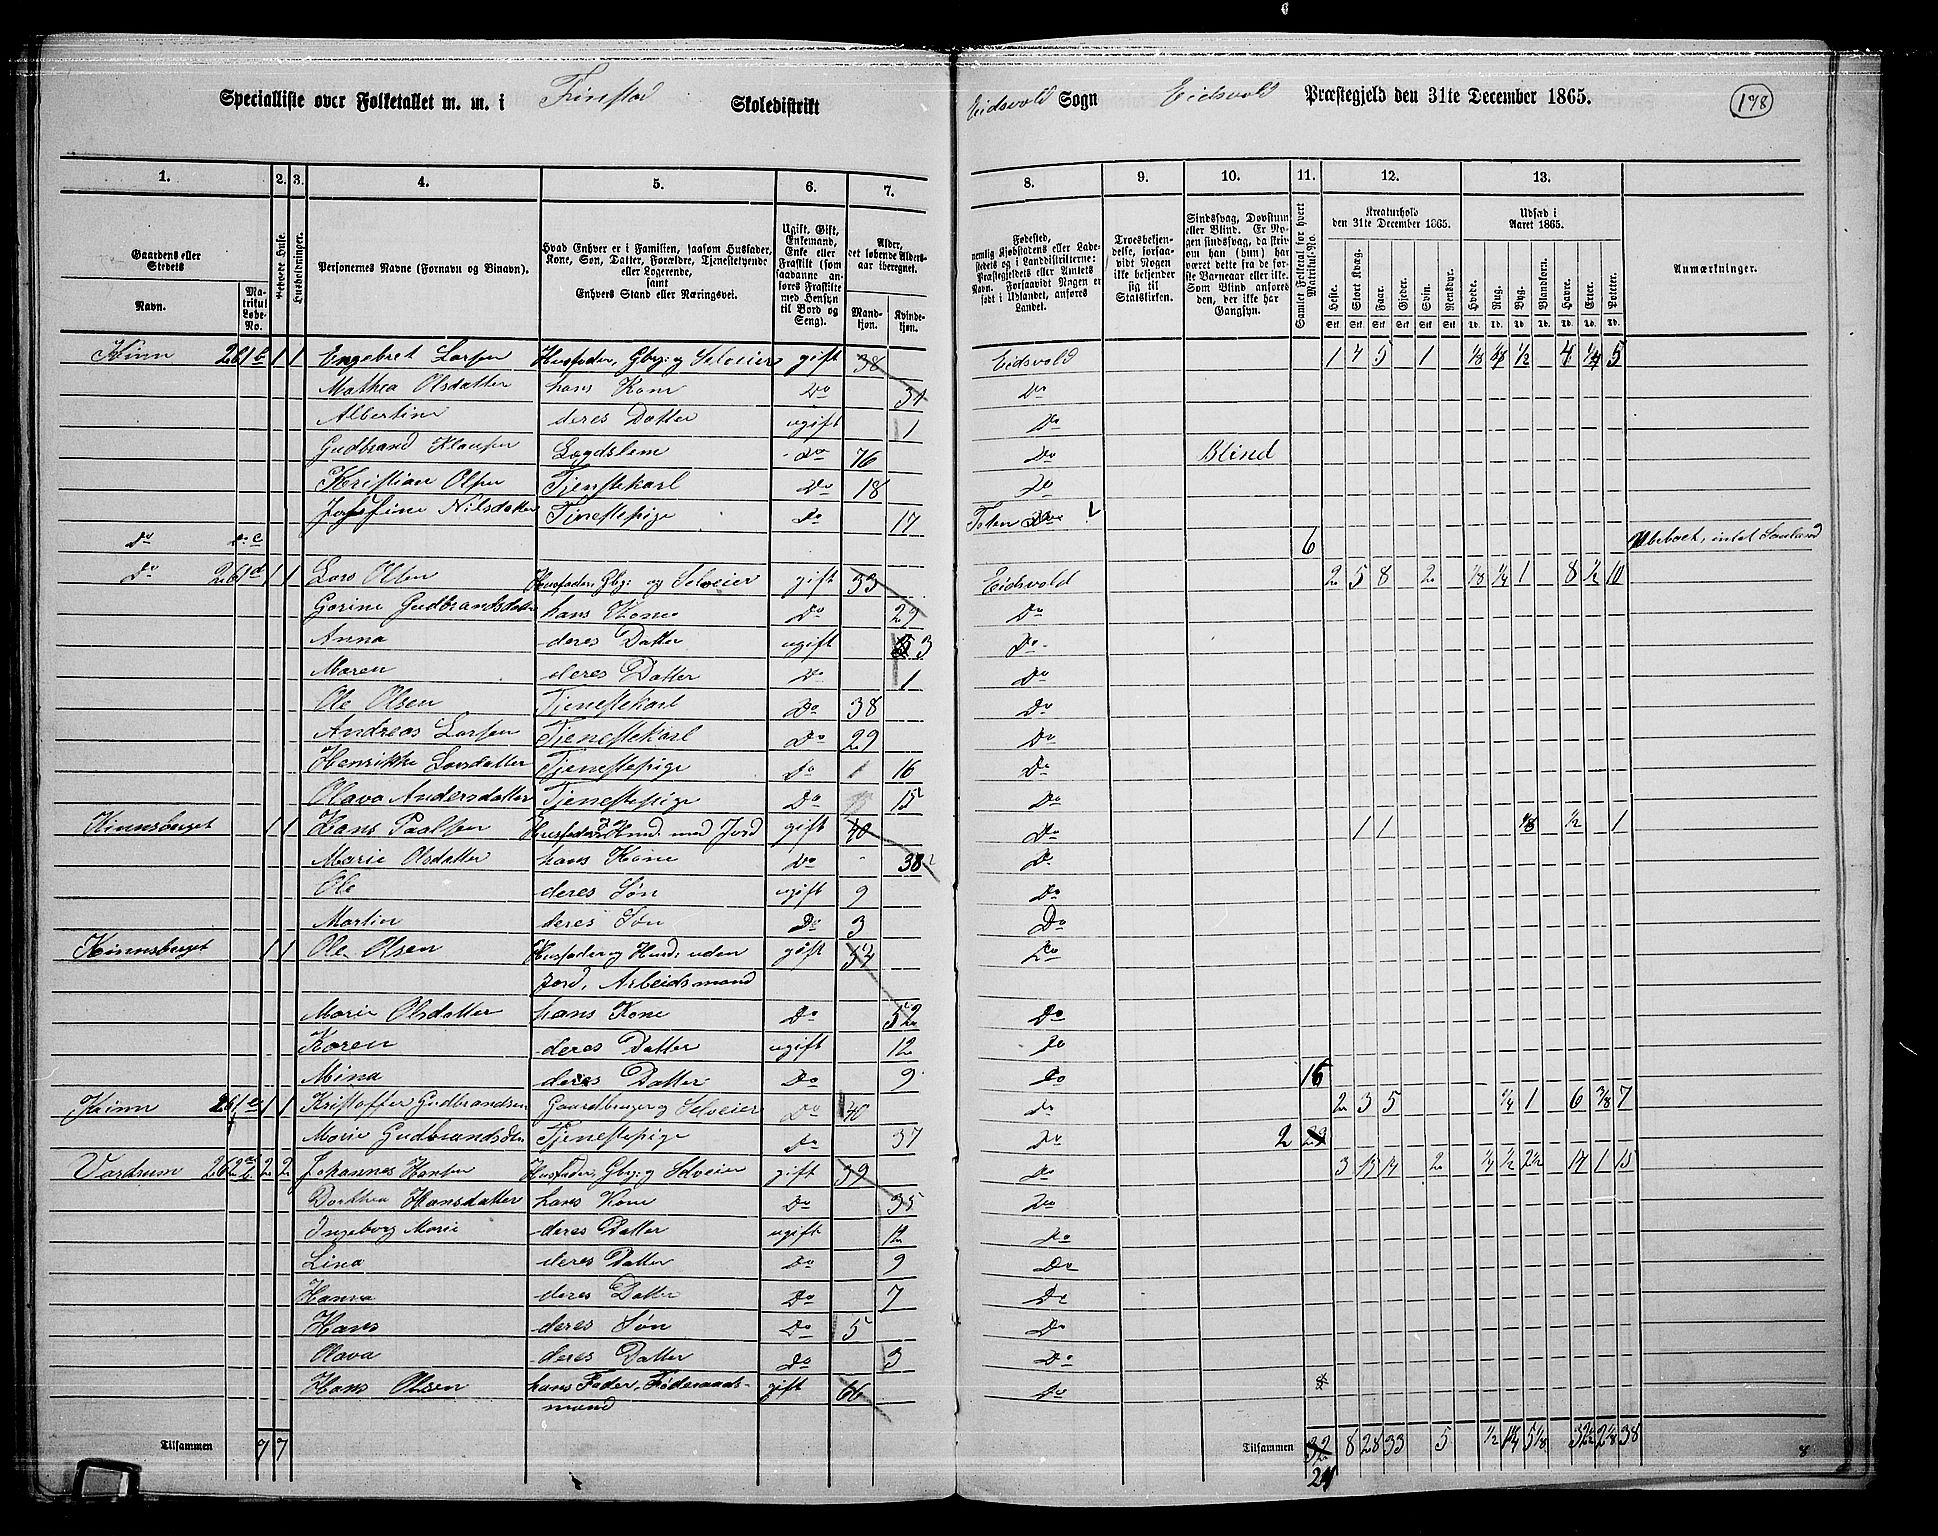 Specialliste over Folketallet m. m. i Finstad Skoledistrikt Eidsvold Sogn Eidsvold Præstegjeld den 31te December 1865. 178
1. 2. 3. 4. 5. 6. 7. 8. 9. 10. 11. 12. 13.
Gaardens eller Stedets Navn. Matrikul Løbe-No.
Beboede Huse.
Husholdninger.
Personernes Navne (Fornavn og Binavn).
Hvad Enhver er i Familien, saasom Husfader, Kone, Søn, Datter, Forældre, Tjenestetyende eller Logerende, samt Enhvers Stand eller Næringsvei.
Ugift, Gift, Enkemand, Enke eller Fraskilt (som saadanne anføres Fraskilte med Hensyn til Bord og Seng).
Alder, det løbende Aldersaar iberegnet. Mandkjøn. Kvindekjøn.
Fødested, nemlig Kjøbstadens eller Ladestedets og i Landdistrikterne: Præstegjeldets eller Amtets Navn. Forsaavidt Nogen er født i Udlandet, anføres Landet.
Troesbekjendelse, forsaavidt Nogen ikke bekjender sig til Statskirken.
Sindssvag, Døvstum eller Blind. Er Nogen sindssvag, da skrives om han (hun) har været dette fra de første Barneaar eller ikke. Som Blind anføres den, der ikke har Gangsyn.
Samlet Folketal for hvert Matrikul-No.
Kreaturhold den 31te December 1865. Heste. Stort Kvæg. Faar. Gjeder. Svin. Rensdyr.
Udsæd i Aaret 1865. Hvede. Rug. Byg. Blandkorn. Havre. Erter. Poteter.
Anmærkninger.
Kinn 261 b 1 1 Engebret Larsen Husfader, Gbr: og Selveier gift 38 Eidsvold 1 4 5 1 1/8 1/2 4 1/4 5
Mathea Olsdatter hans Kone Do 31 Do
Albertine deres Datter ugift 1 Do
Gudbrand Klausen Lægdslem Do 76 Do Blind
Kristian Olsen Tjenestekarl Do 18 Do
Josefine Nilsdatter Tjenestepige Do 17 Toten
Do Do c 6 Ubeboet, intet Saaland
Do 261 d 1 1 Lars Olsen Husfader, Gbr: og Selveier gift 33 Eidsvold 2 5 8 2 1/8 1/4 1 8 1/2 10
Gorine Gudbrandsdatter hans Kone Do 29 Do
Anna deres Datter ugift 3 Do
Maren deres Datter Do 1 Do
Ole Olsen Tjenestekarl Do 38 Do
Andreas Larsen Tjenestekarl Do 29 Do
Henrikke Larsdatter Tjenestepige Do 16 Do
Olava Andersdatter Tjenestepige Do 15 Do
Kinnsberget 1 1 Hans Paulsen Husfader Husmd: med Jord gift 40 Do 1 1 1/8 1/2 1
Marie Olsdatter hans Kone Do 38 Do
Ole deres Søn ugift 9 Do
Martin deres Søn Do 3 Do
Kinnsberget 1 1 Ole Olsen Husfader og Husmd: uden gift 54 Do
Jord, Arbeidsmand
Marie Olsdatter hans Kone Do 52 Do
Karen deres Datter ugift 12 Do
Mina deres Datter Do 9 Do 16
Kinn 261 e 1 1 Kristoffer Gudbrandsen Gaardbruger og Selveier Do 40 Do 2 3 5 1/4 1 6 3/8 7
Marie Gudbrandsdtr Tjenestepige Do 37 Do 2
Vardrum 262 2 2 Johannes Hansen Husfader, Gbr: og Selveier gift 39 Do 3 15 14 2 1/4 1/2 2 1/2 14 1 15
Dorthea Hansdatter hans Kone Do 35 Do
Ingeborg Marie deres Datter ugift 12 Do
Lina deres Datter Do 9 Do
Hanna deres Datter Do 7 Do
Hans deres Søn Do 5 Do
Olava deres Datter Do 3 Do
Hans Olsen hans Fader, Føderaads- gift 66 Do
mand
Tilsammen 7 7 Tilsammen 32 8 28 33 5 1/2 5 1/8 32 1/2 2 1/8 38
24
8